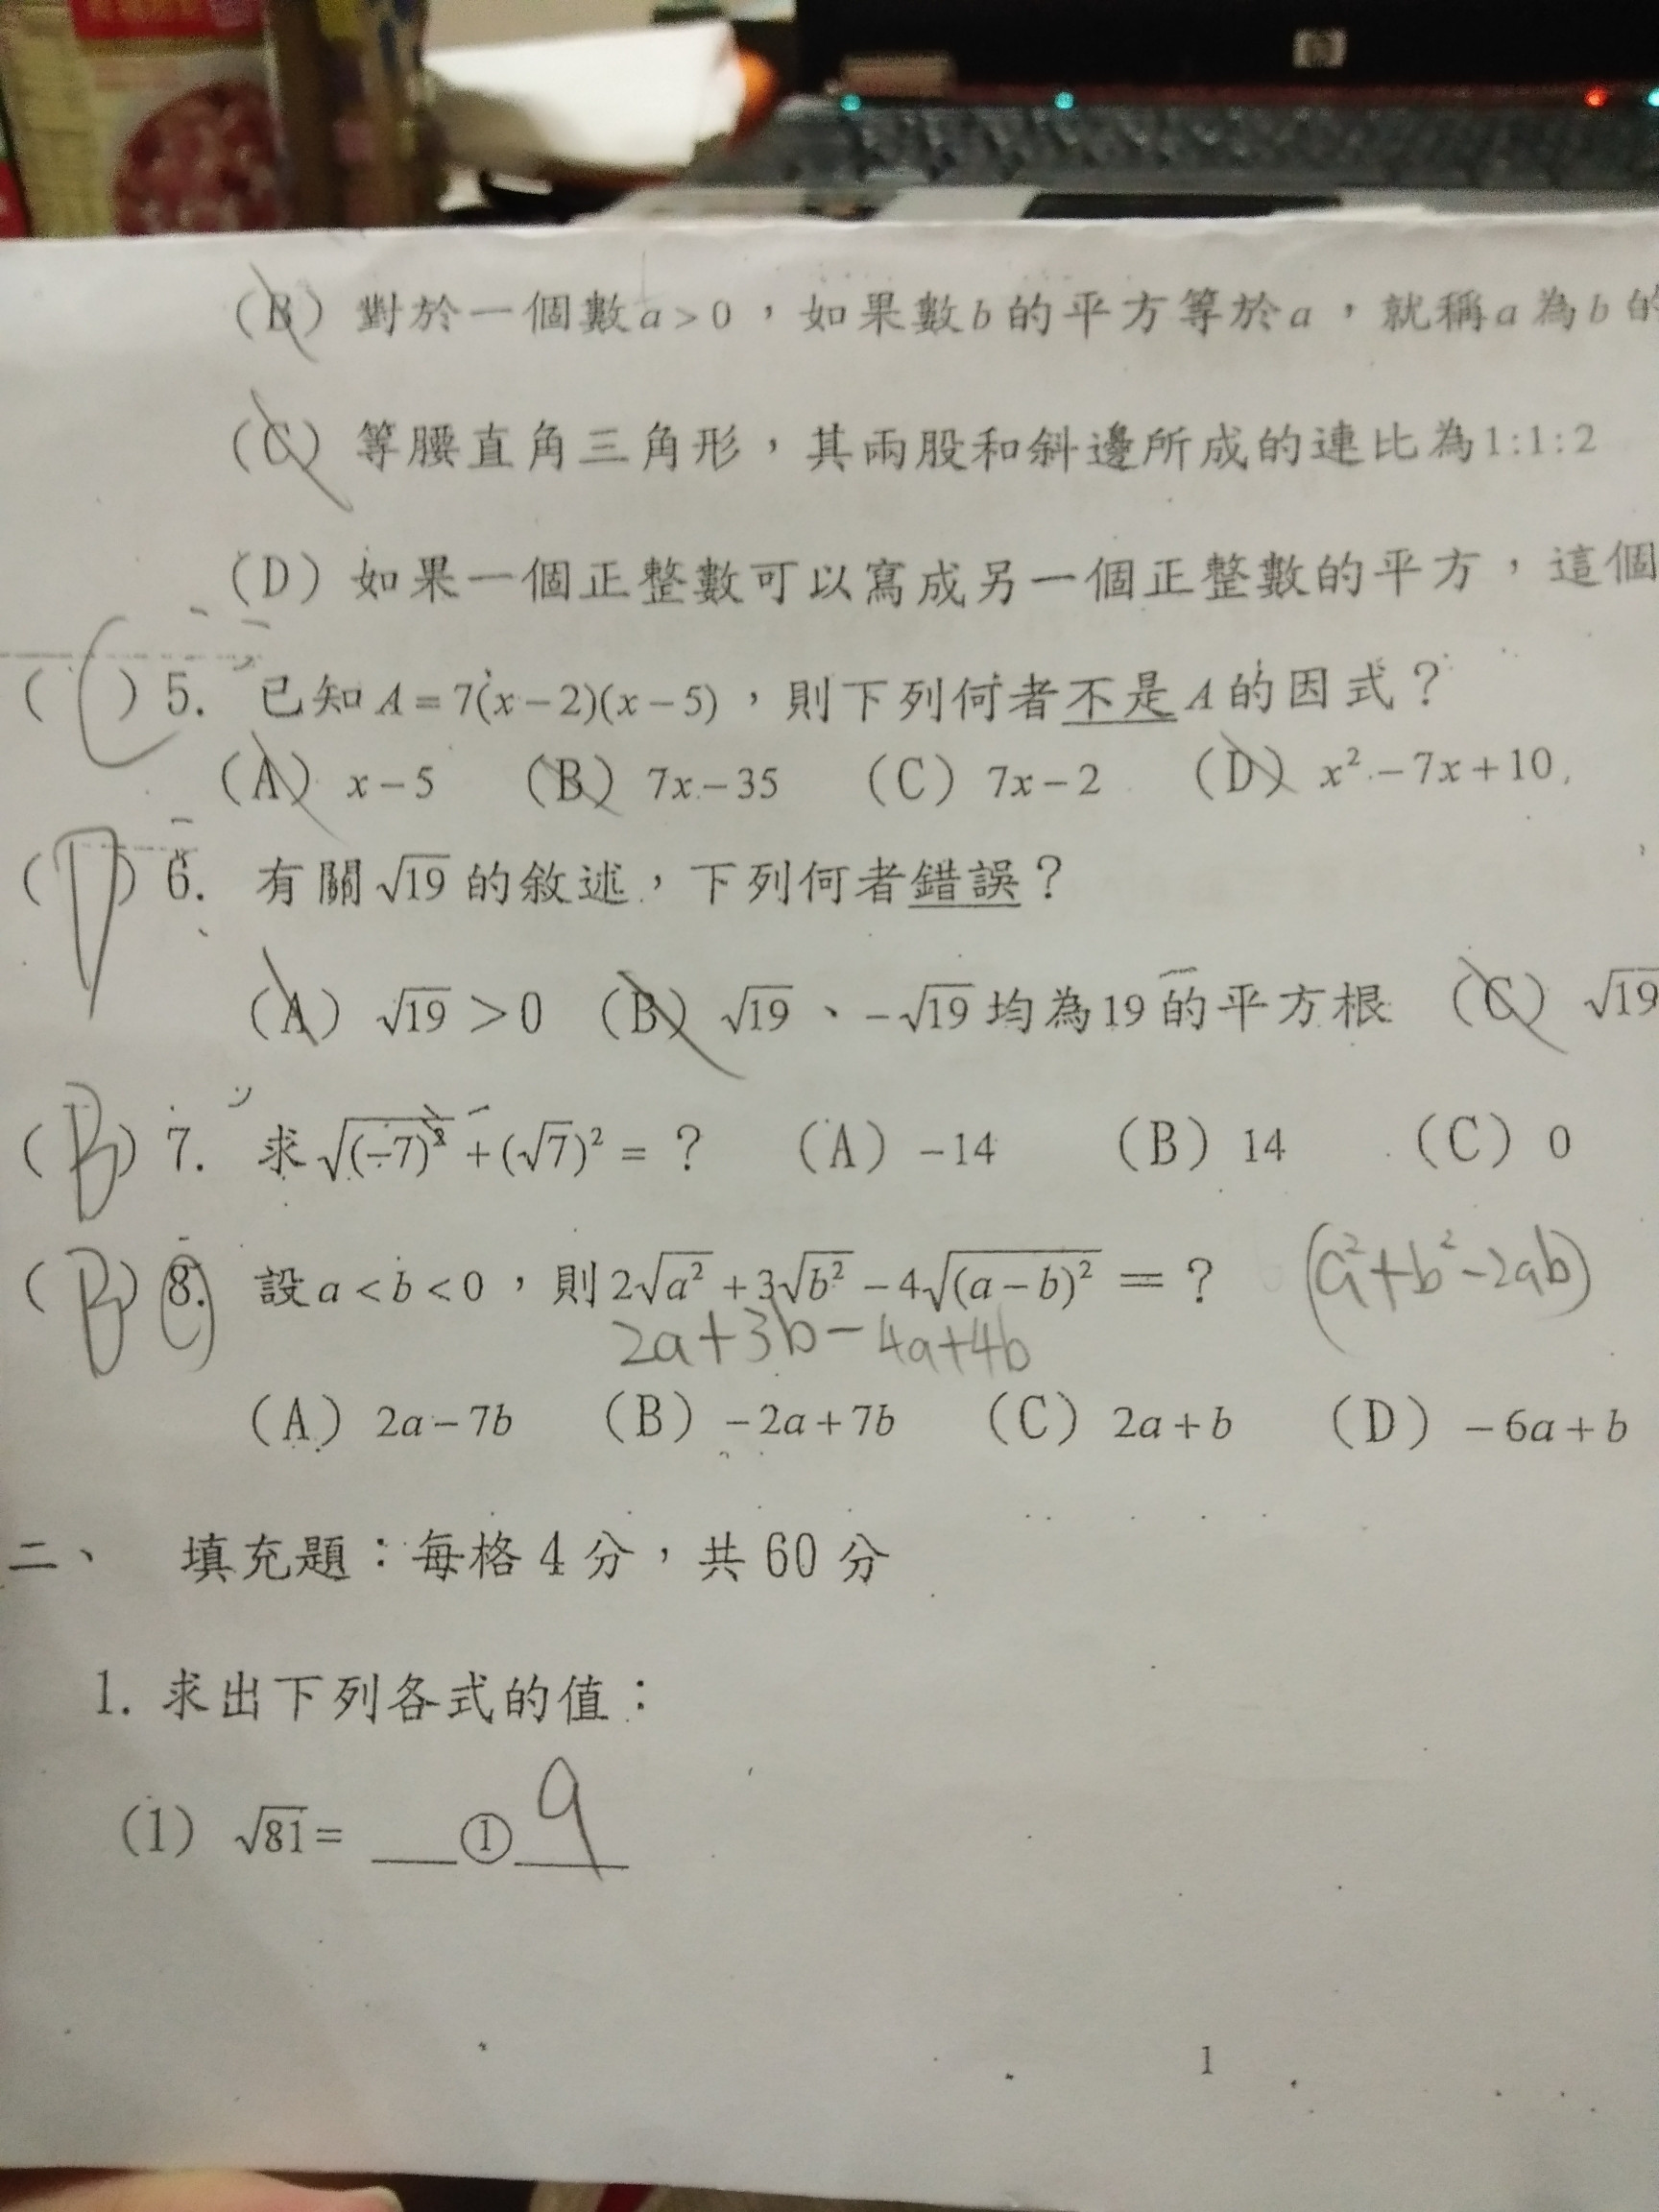 (B) 對於一個數 a > 0，如果數 b 的平方等於 a，就稱 a 為 b 的
(C) 等腰直角三角形，其兩股和斜邊所成的連比為 1:1:2
(D) 如果一個正整數可以寫成另一個正整數的平方，這個
( C ) 5. 已知 A = 7(x − 2)(x − 5)，則下列何者不是 A 的因式？
(A) x − 5 (B) 7x − 35 (C) 7x − 2 (D) x² − 7x + 10
( D ) 6. 有關 √19 的敘述，下列何者錯誤？
(A) √19 > 0 (B) √19、−√19 均為 19 的平方根 (C) √19
( B ) 7. 求 √(−7)² + (√7)² = ？ (A) −14 (B) 14 (C) 0
( B ) 8. 設 a < b < 0，則 2√a² + 3√b² − 4√(a − b)² = ？ (a² + b² − 2ab)
2a + 3b − 4a + 4b
(A) 2a − 7b (B) −2a + 7b (C) 2a + b (D) −6a + b
二、 填充題：每格 4 分，共 60 分
1. 求出下列各式的值：
(1) √81 = ① 9
1